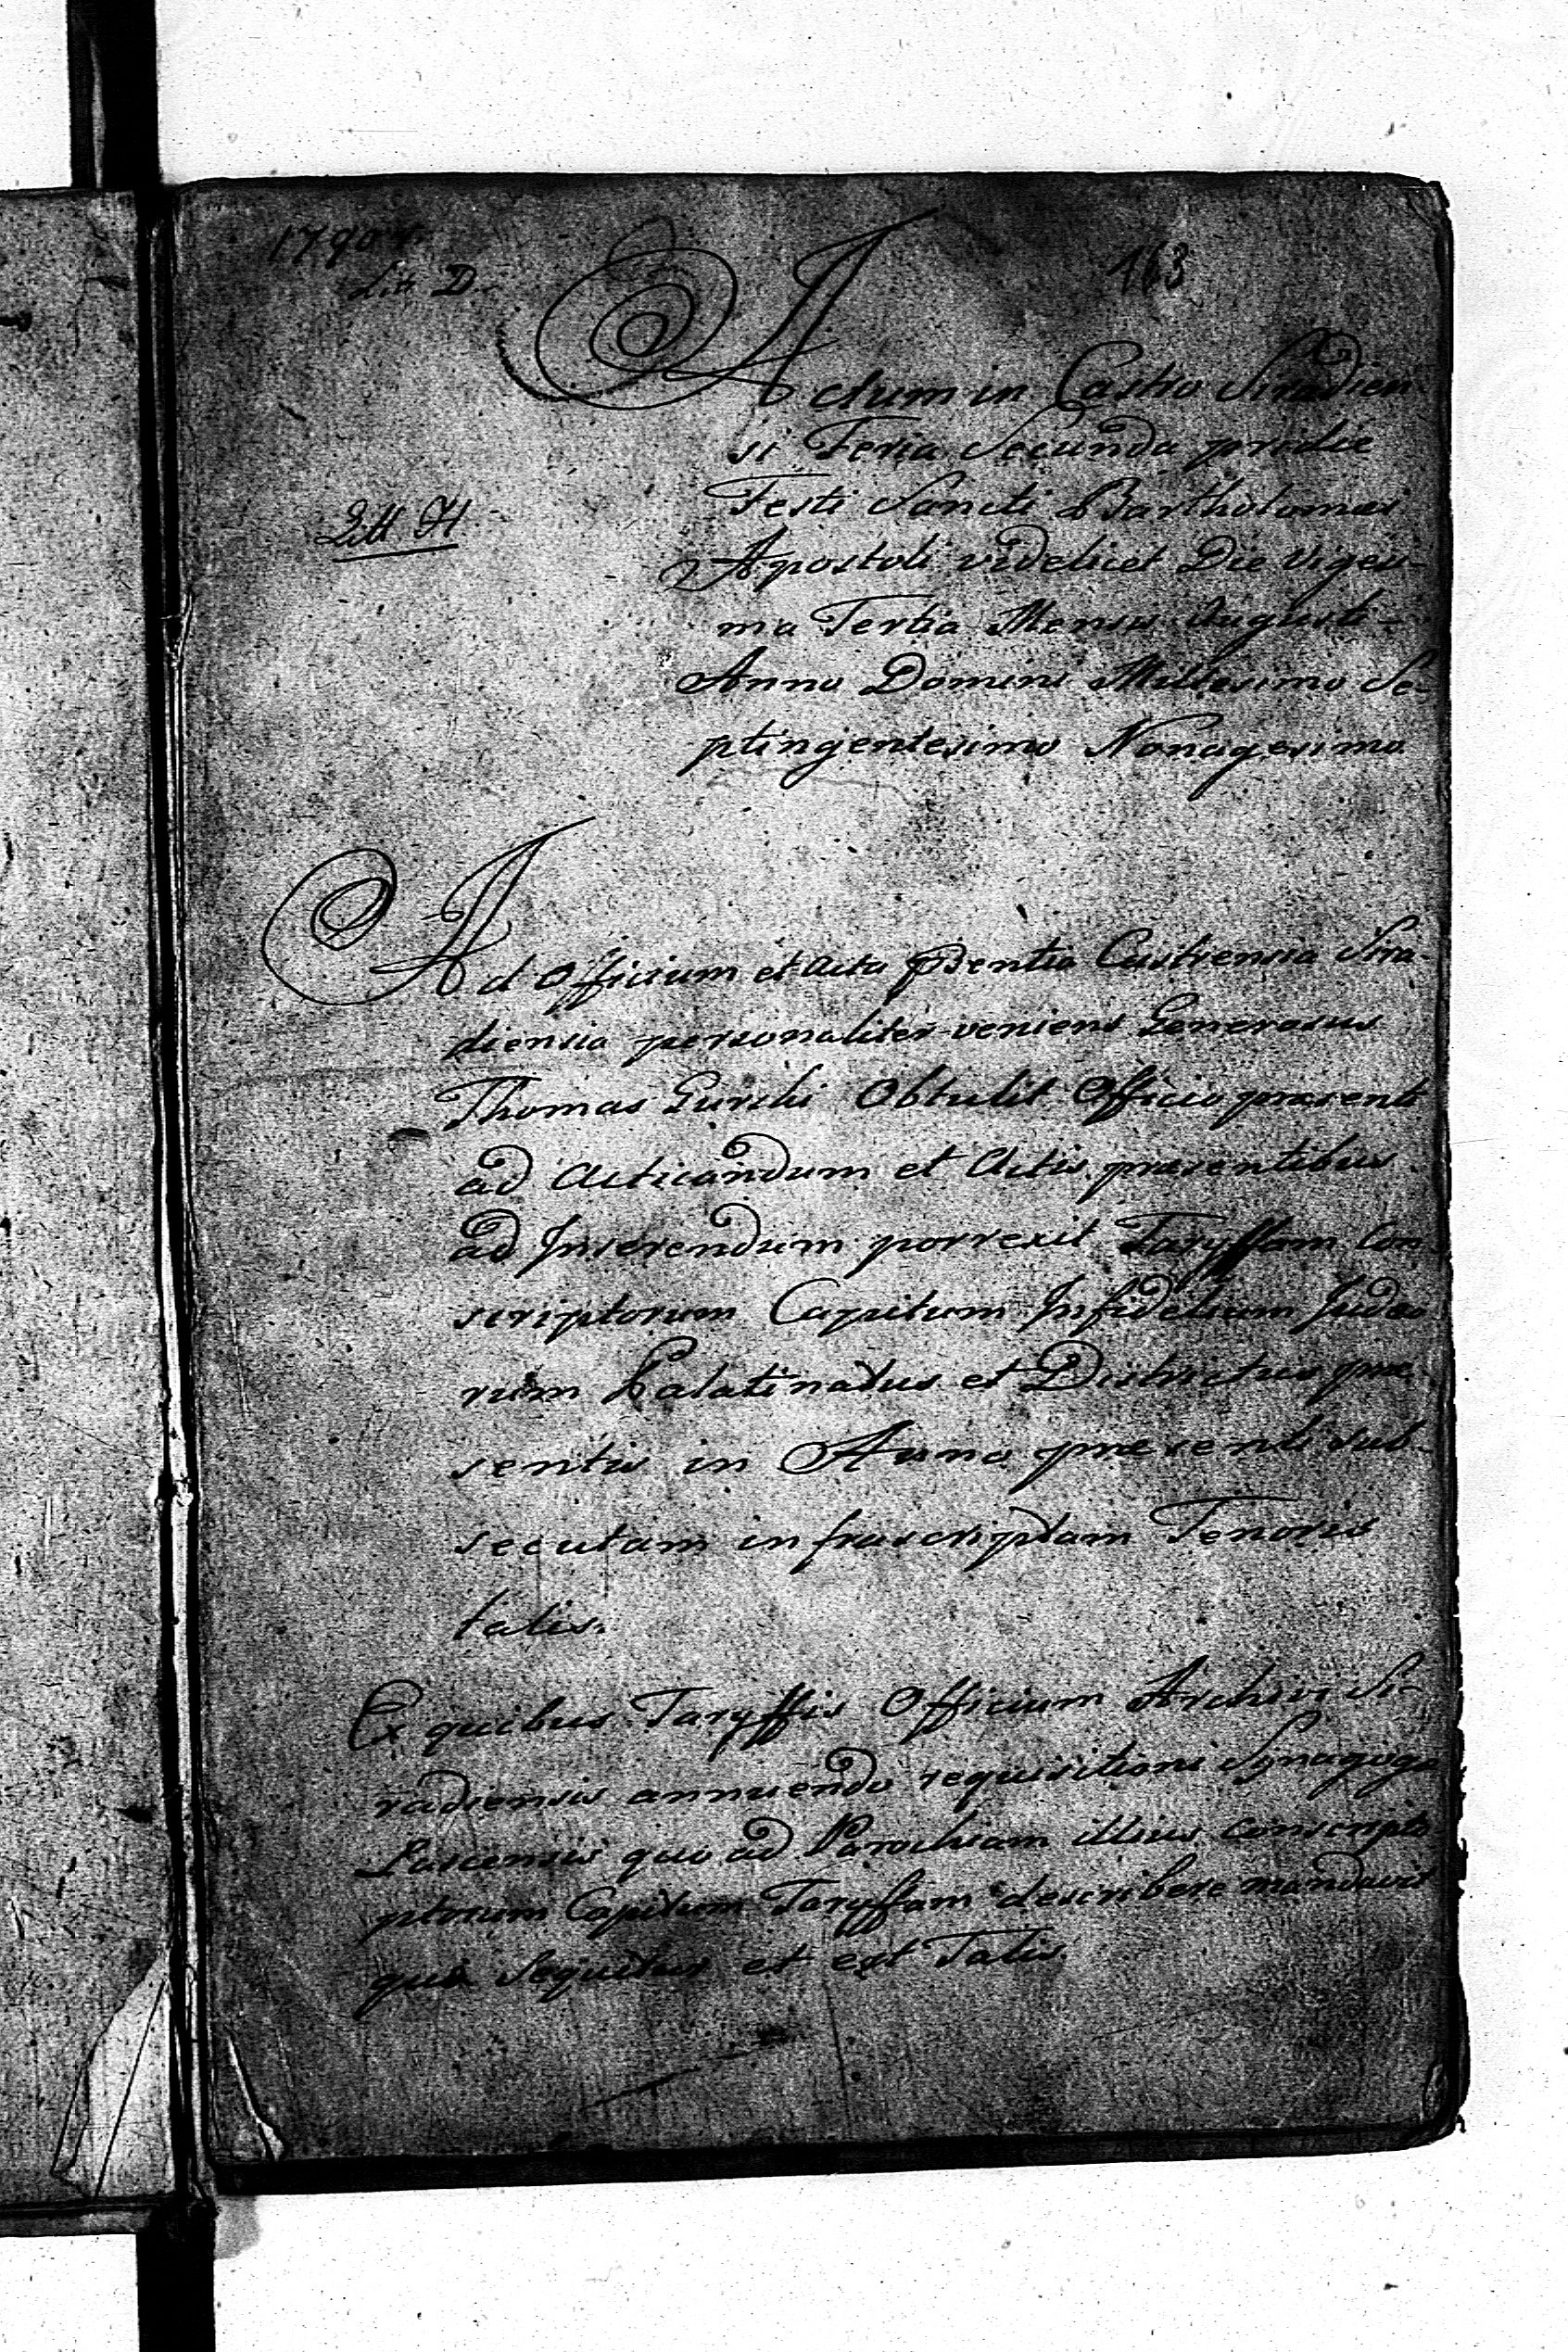 1790 r.
Lit. D.
163
Actum in Castro Siradien
si Feria Secunda pridie
Festi Sancti Bartholomæi
Litt H
Apostoli videlicet Die Vigesi-
ma Tertia Mensis Augusti-
Anno Domini Millesimo Se-
ptingentesimo Nonagesimo
Ad Officium et Acta Castrensia Sira-
diensia personaliter veniens Generosus
Thomas Gurski Obtulit Officio præsenti
ad Acticandum et Actis præsentibus
ad Inserendum porrexit Taryffam Con
scriptorum Capitum Infidelium Judæo
rum Palatinatus et Districtus præ
sentis in Anno præsenti sub-
secutam infrascriptam Tenoris
talis.
Ex quibus Taryffis Officium Archivi Si-
radiensis annuendo requisitioni Synagoga
Lascensis quo ad Parochiam illius conscripto
ptorum Capitum Taryffam describere mandavit
qua Sequitur et est Talis